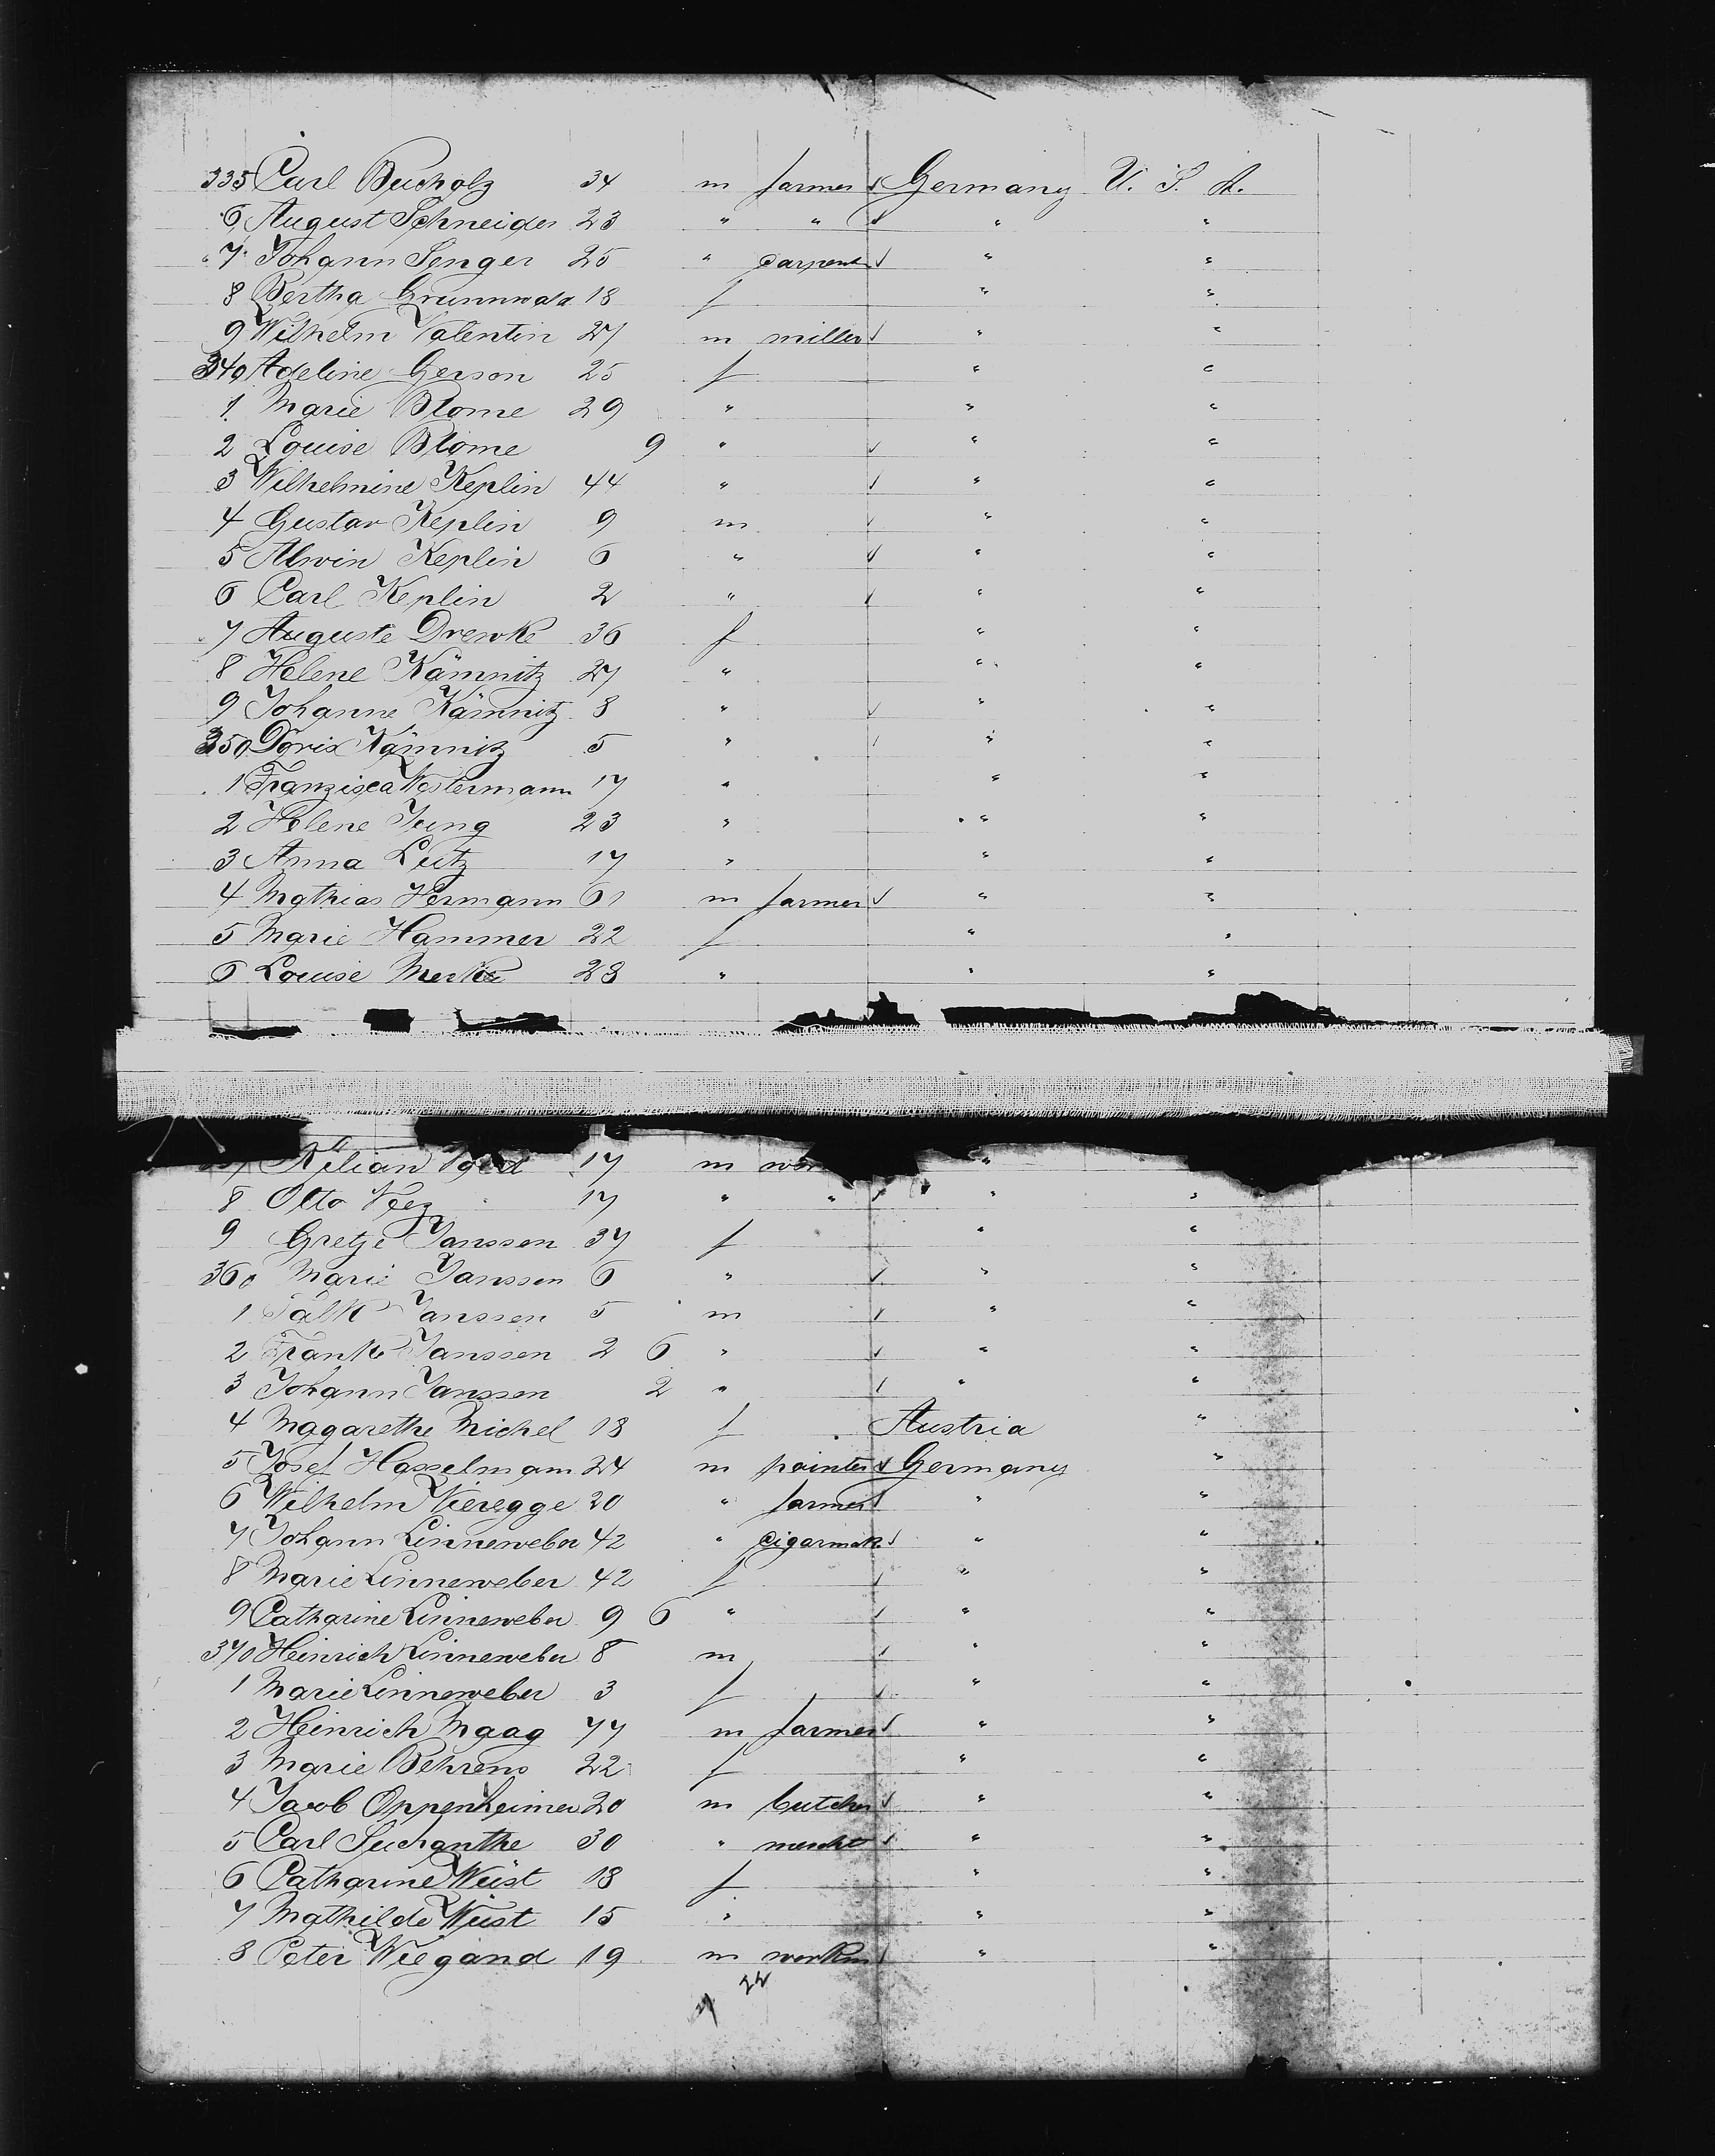 335 Carl Bucholz 34 m farmer √ Germany U. S. A.
6 August Schneider 23 " " √ " "
7 Johann Senger 25 " carpent √ " "
8 Bertha Grunnwald 18 f " "
9 Wilhelm Valentin 27 m miller √ " "
340 Adeline Gerson 25 f " "
1 Marie Blome 29 " " "
2 Louise Blome 9 " √ " "
3 Wilhelmine Keplin 44 " √ " "
4 Gustav Keplin 9 m √ " "
5 Alwin Keplin 6 " √ " "
6 Carl Keplin 2 " √ " "
7 Auguste Drewke 36 f " "
8 Helene Kämnitz 27 " " "
9 Johanne Kämnitz 8 " √ " "
350 Doris Kämnitz 5 " √ " "
1 Franzisca Westermann 17 " " "
2 Helene Jung 23 " " "
3 Anna Lutz 17 " " "
4 Mathias Hermann 61 m farmer √ " "
5 Marie Hammer 22 f " "
6 Louise 28 " " "
Kilian 17 m "
8 Otto 17 " " √ " "
9 Gretje Janssen 37 f " "
360 Marie Janssen 6 " √ " "
1 Janssen 5 m √ " "
2 Frank Janssen 2 6 " √ " "
3 Johann Janssen 2 " √ " "
4 Magarethe Michel 18 f Austria "
5 Josef Hasselmann 24 m painter √ Germany "
6 Wilhelm Vieregge 20 " farmer √ " "
7 Johann Linneweber 42 " cigarmak √ " "
8 Marie Linneweber 42 f √ " "
9 Catharine Linneweber 9 6 " √ " "
370 Heinrich Linneweber 8 m √ " "
1 Marie Linneweber 3 f √ " "
2 Heinrich Maag 77 m farmer √ " "
3 Marie Behrens 22 f " "
4 Jacob Oppenheimer 20 m butcher √ " "
5 Carl Suchanthe 30 " mercht √ " "
6 Catharine Wüst 18 f " "
7 Mathilde Wüst 15 " " "
8 Peter Wiegand 19 m workm √ " "
22